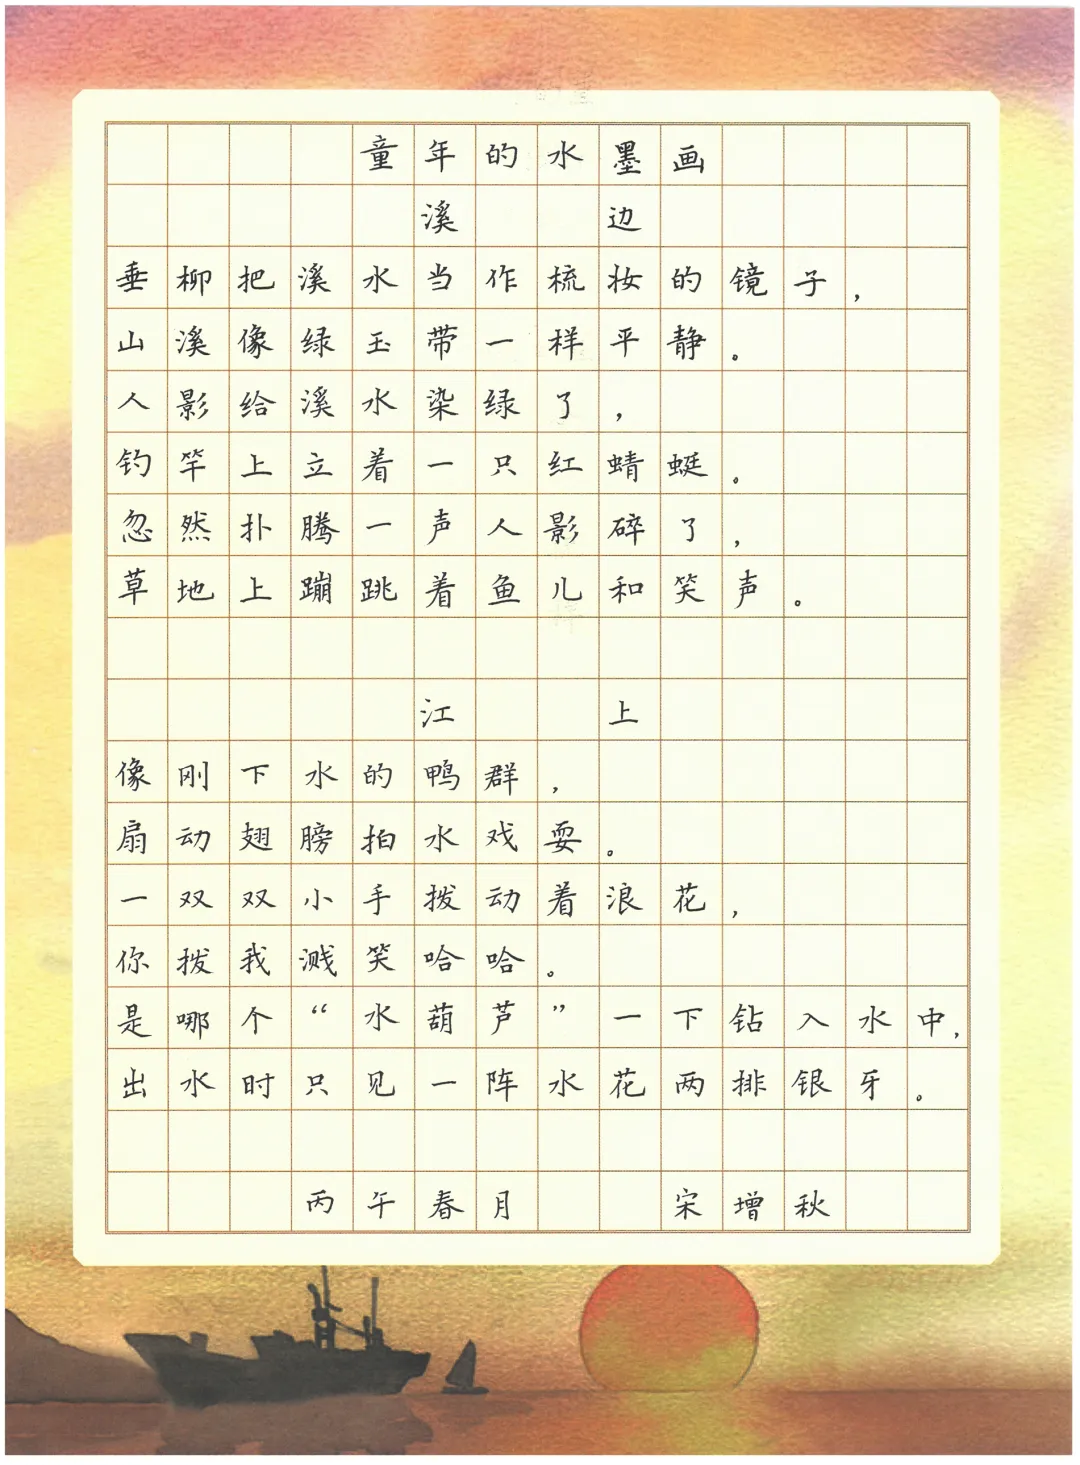 童年的水墨画
溪边
垂柳把溪水当作梳妆的镜子，
山溪像绿玉带一样平静。
人影给溪水染绿了，
钓竿上立着一只红蜻蜓。
忽然扑腾一声人影碎了，
草地上蹦跳着鱼儿和笑声。
江上
像刚下水的鸭群，
扇动翅膀拍水戏耍。
一双双小手拨动着浪花，
你拨我溅笑哈哈。
是哪个“水葫芦”一下钻入水中，
出水时只见一阵水花两排银牙。
丙午春月 宋增秋